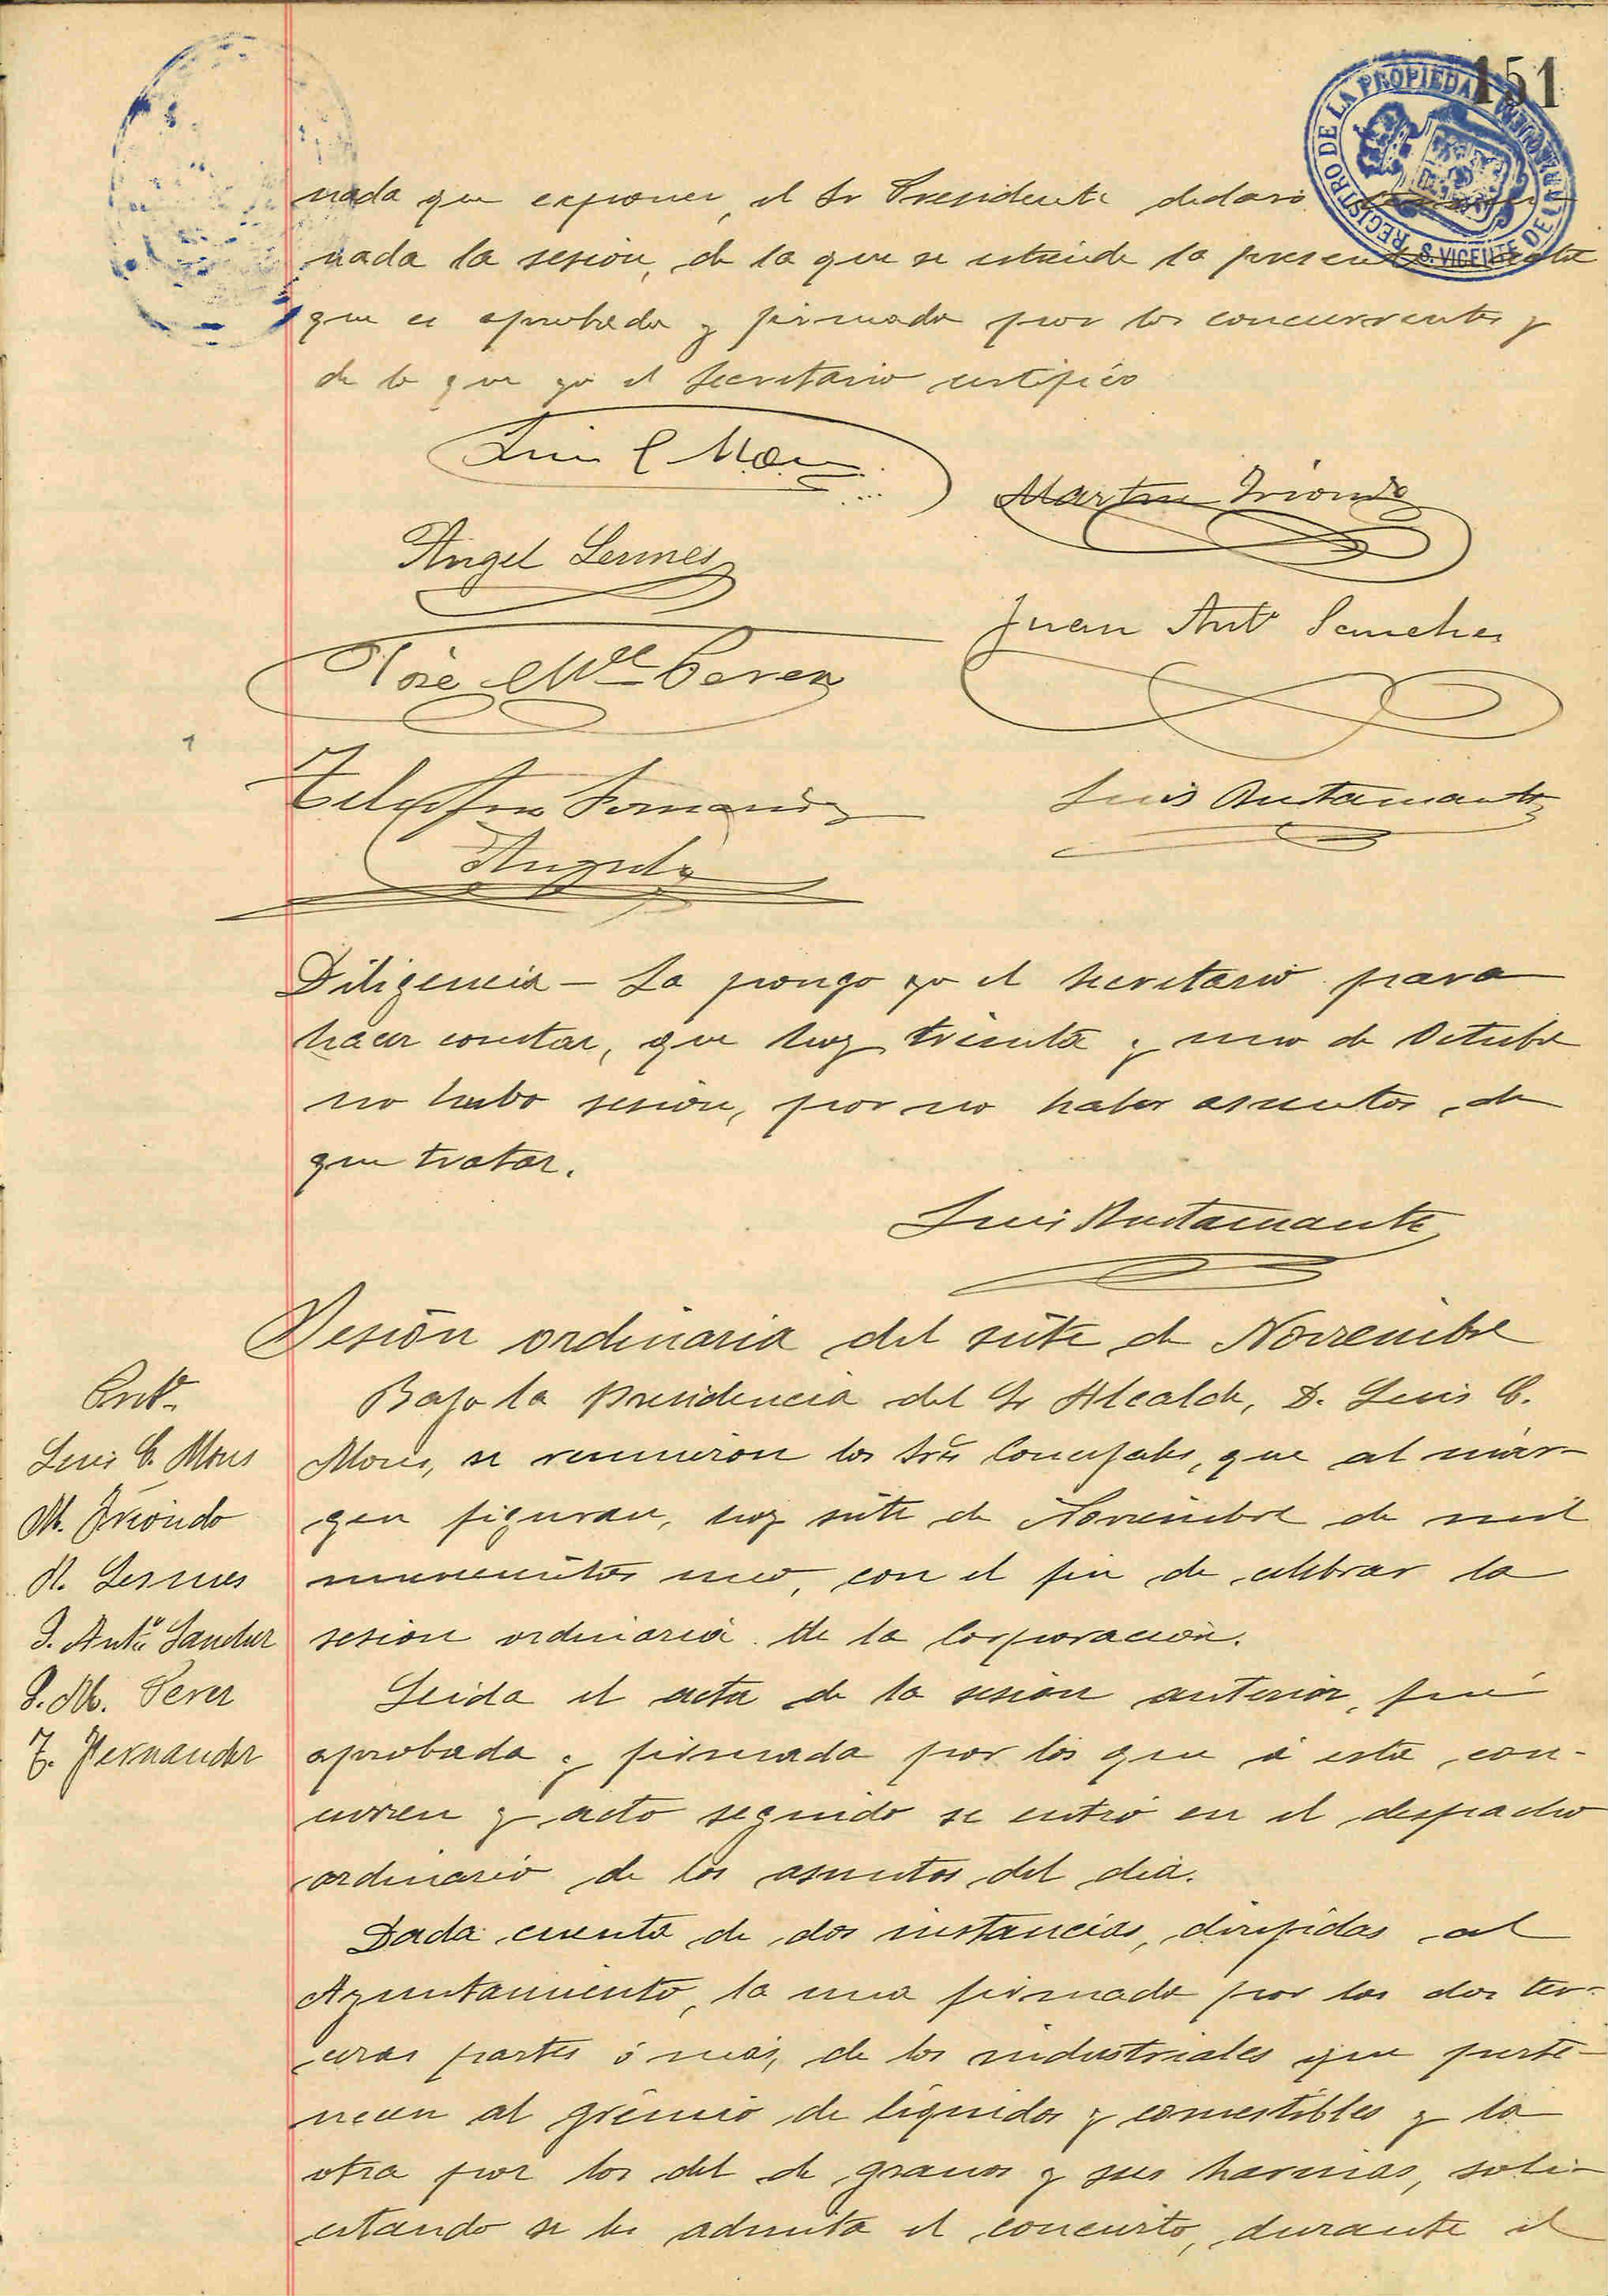 151
REGISTRO DE LA PROPIEDAD
S. VICENTE DE LA BARQUERA
nada que exponer, el Sr Presidente declaró termi-
nada la sesión, de la que se estiende la presente acta
que es aprobada y firmada por los concurrentes y
de lo que yo el Secretario certifico
Luis C Mo
Martin Iriondo
Angel Lesmes
Juan Antº Sanchez
José Mª Perez
Telesforo Fernandez
Angulo
Luis Bustamante
Diligencia – La pongo yo el Secretario para
hacer constar, que hoy treinta y uno de Octubre
no hubo sesión, por no haber asuntos de
que tratar.
Luis Bustamante
Sesión ordinaria del siete de Noviembre
Bajo la Presidencia del Sr Alcalde, D. Luis C.
Mons, se reunieron los Srs Concejales, que al már-
gen figuran, hoy siete de Noviembre de mil
novecientos uno, con el fin de celebrar la
sesion ordinaria de la Corporación.
Leida el acta de la sesión anterior, fué
aprobada y firmada por los que á esta con-
curren y acto seguido se entró en el despacho
ordinario de los asuntos del dia.
Dada cuenta de dos instancias, dirigidas al
Ayuntamiento, la una firmada por las dos ter-
ceras partes ó más, de los industriales que perte-
necen al grémio de líquidos y comestibles y la
otra por los del de granos y sus harinas, soli-
citando se les admita el concierto, durante el
Luis C. Mons
M. Iriondo
A. Lesmes
J. Antº Sanchez
J. M. Perez
T. Fernandez